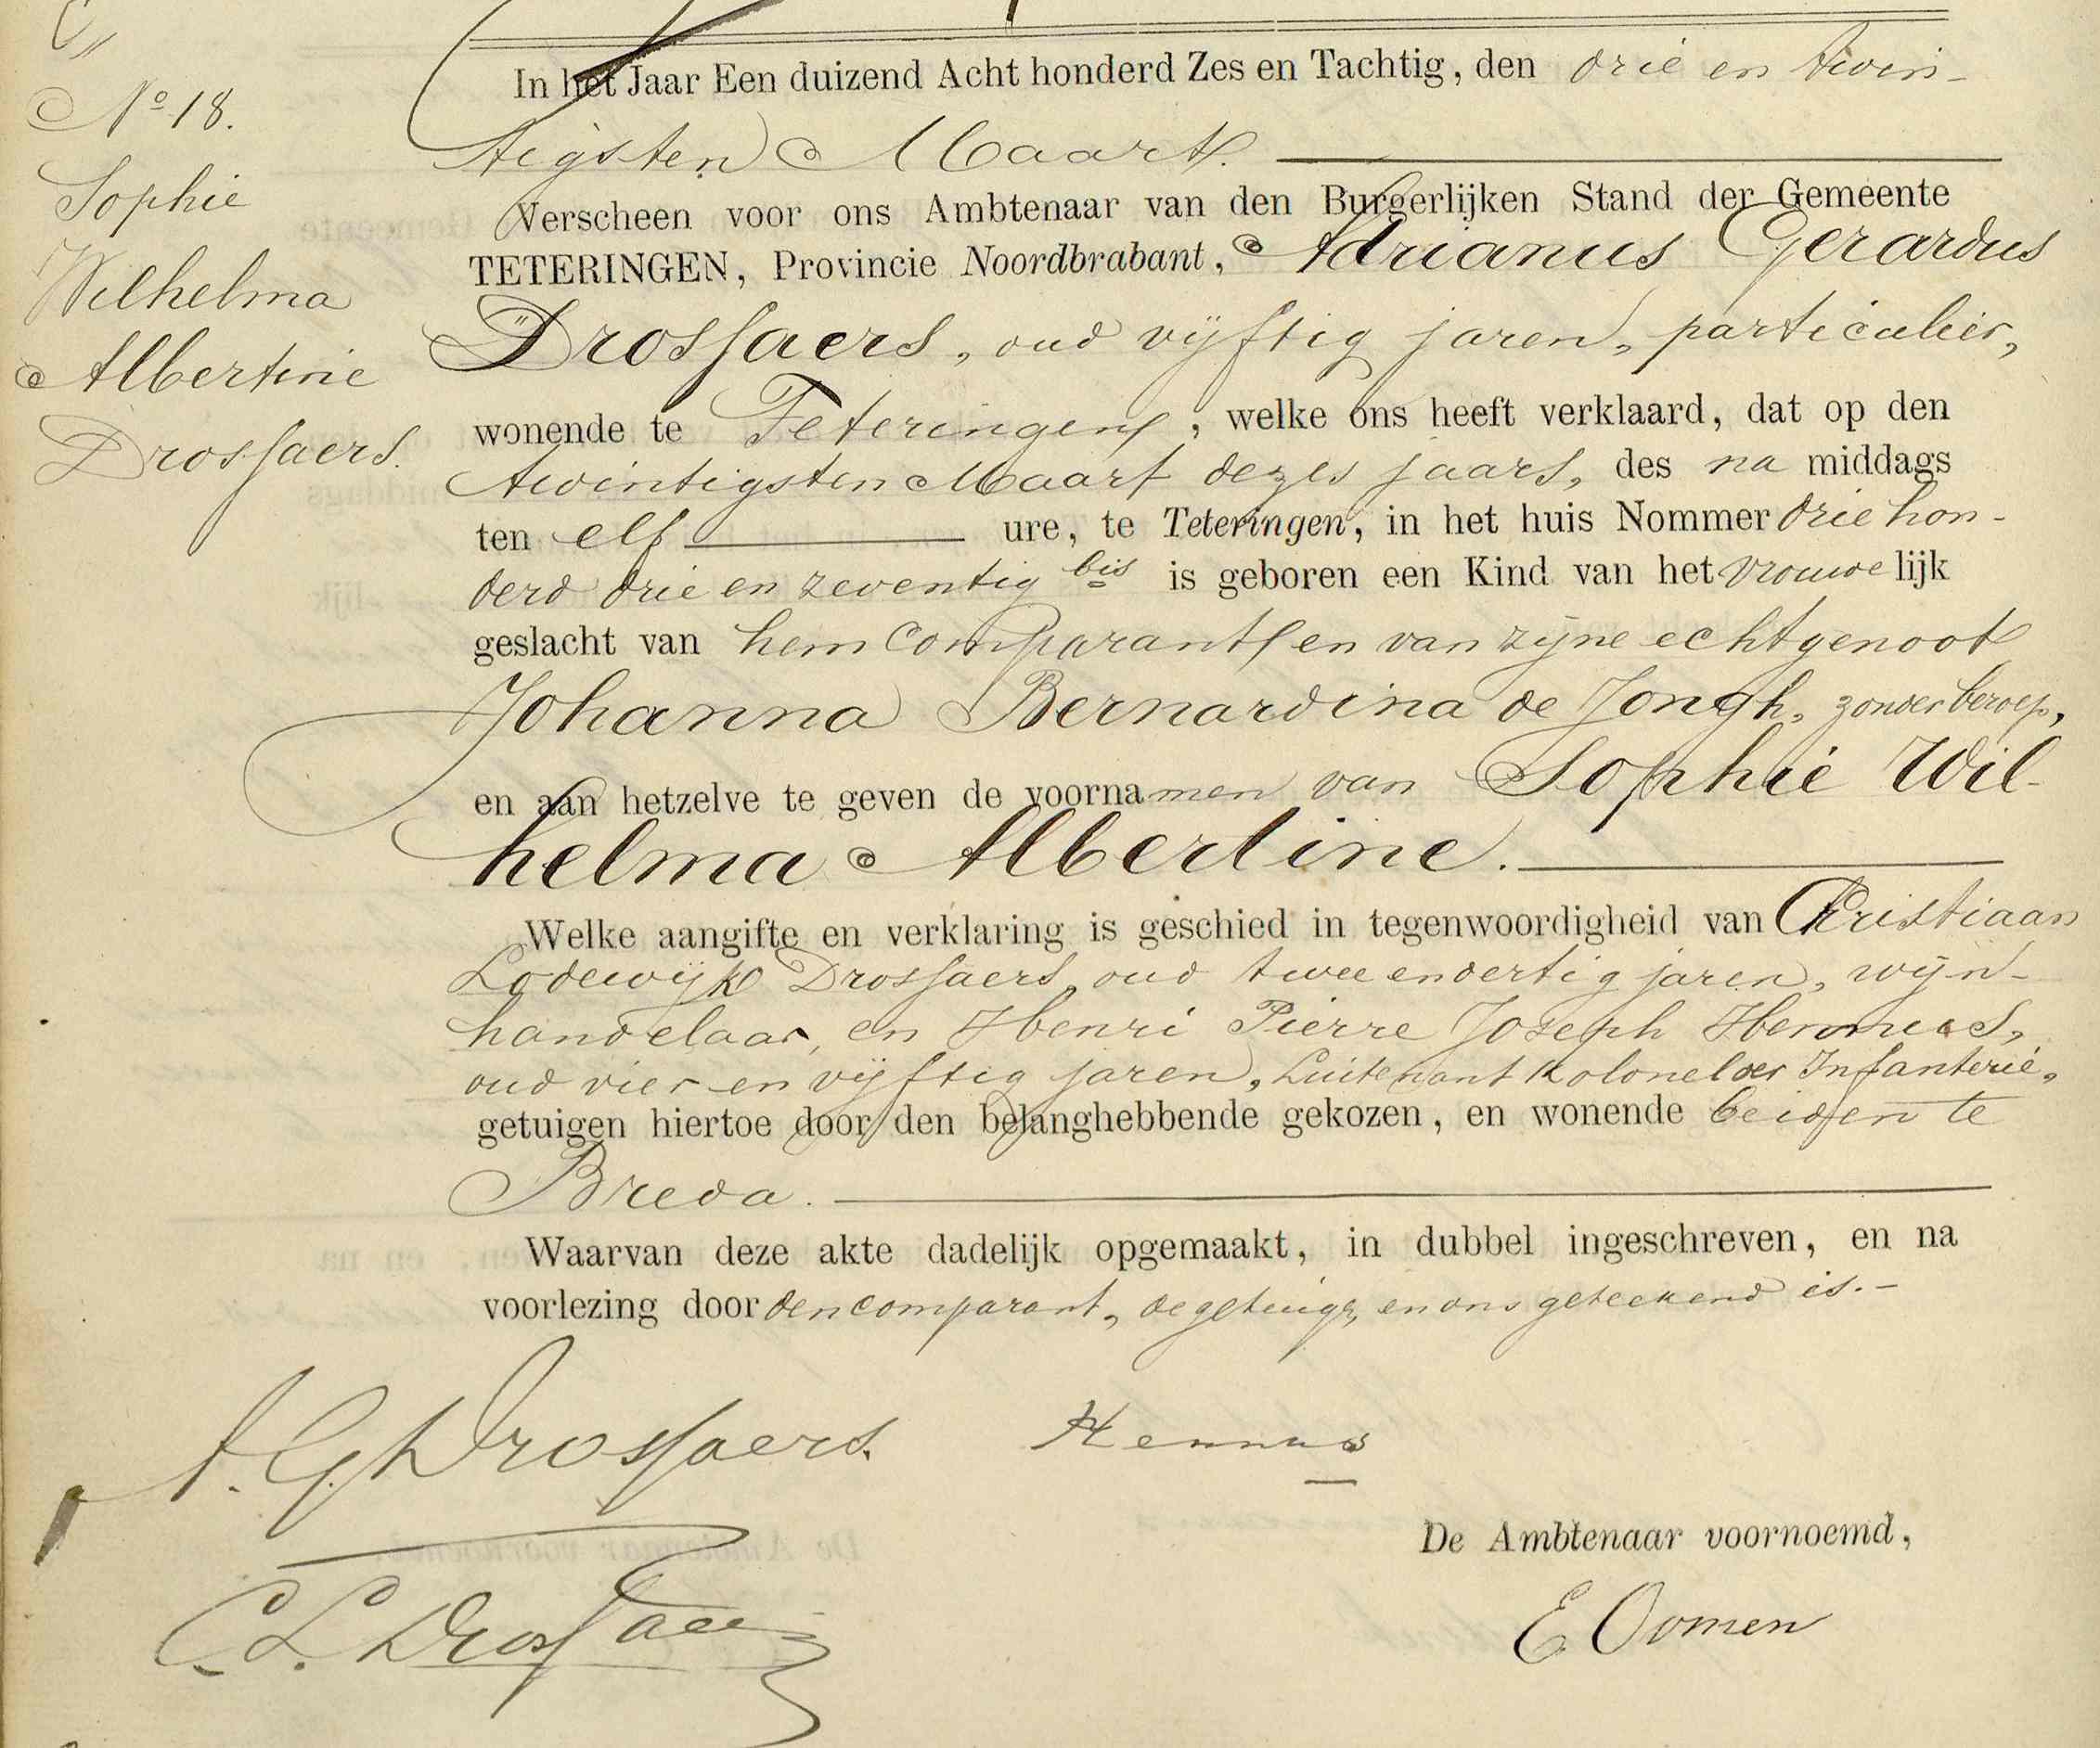 Nº 18.
Sophie
Wilhelma
Albertine
Drossaers.
In het Jaar Een duizend Acht honderd Zes en Tachtig, den drie en twin-
tigsten Maart.
Verscheen voor ons Ambtenaar van den Burgerlijken Stand der Gemeente
TETERINGEN, Provincie Noordbrabant, Adrianus Gerardus
Drossaers, oud vijftig jaren, particulier,
wonende te Teteringen, welke ons heeft verklaard, dat op den
twintigsten Maart dezes jaars, des na middags
ten elf ure, te Teteringen, in het huis Nommer drie hon-
derd drie en zeventig bis is geboren een Kind van het vrouwelijk
geslacht van hem Comparant en van zijne echtgenoot
Johanna Bernardina de Jongh, zonder beroep,
en aan hetzelve te geven de voornamen van Sophie Wil-
helma Albertine.
Welke aangifte en verklaring is geschied in tegenwoordigheid van Christiaan
Lodewijk Drossaers, oud twee en dertig jaren, wijn-
handelaar, en Henri Pierre Joseph Hennus,
oud vier en vijftig jaren, Luitenant Kolonel der Infanterie,
getuigen hiertoe door den belanghebbende gekozen, en wonende beiden te
Breda.
Waarvan deze akte dadelijk opgemaakt, in dubbel ingeschreven, en na
voorlezing door den comparant, de getuigen en ons geteekend is.-
A. G. Drossaers.
Hennus
De Ambtenaar voornoemd,
C. L. Drossaers
E Oomen